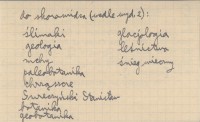 do skorowidza (wedle wyd. 2):
ślimaki
geologia
mchy
paleobotanika
chrząszcze
Swarczyński Stanisław
botanika
geobotanika
glacjologia
leśnictwo
śnieg wieczny